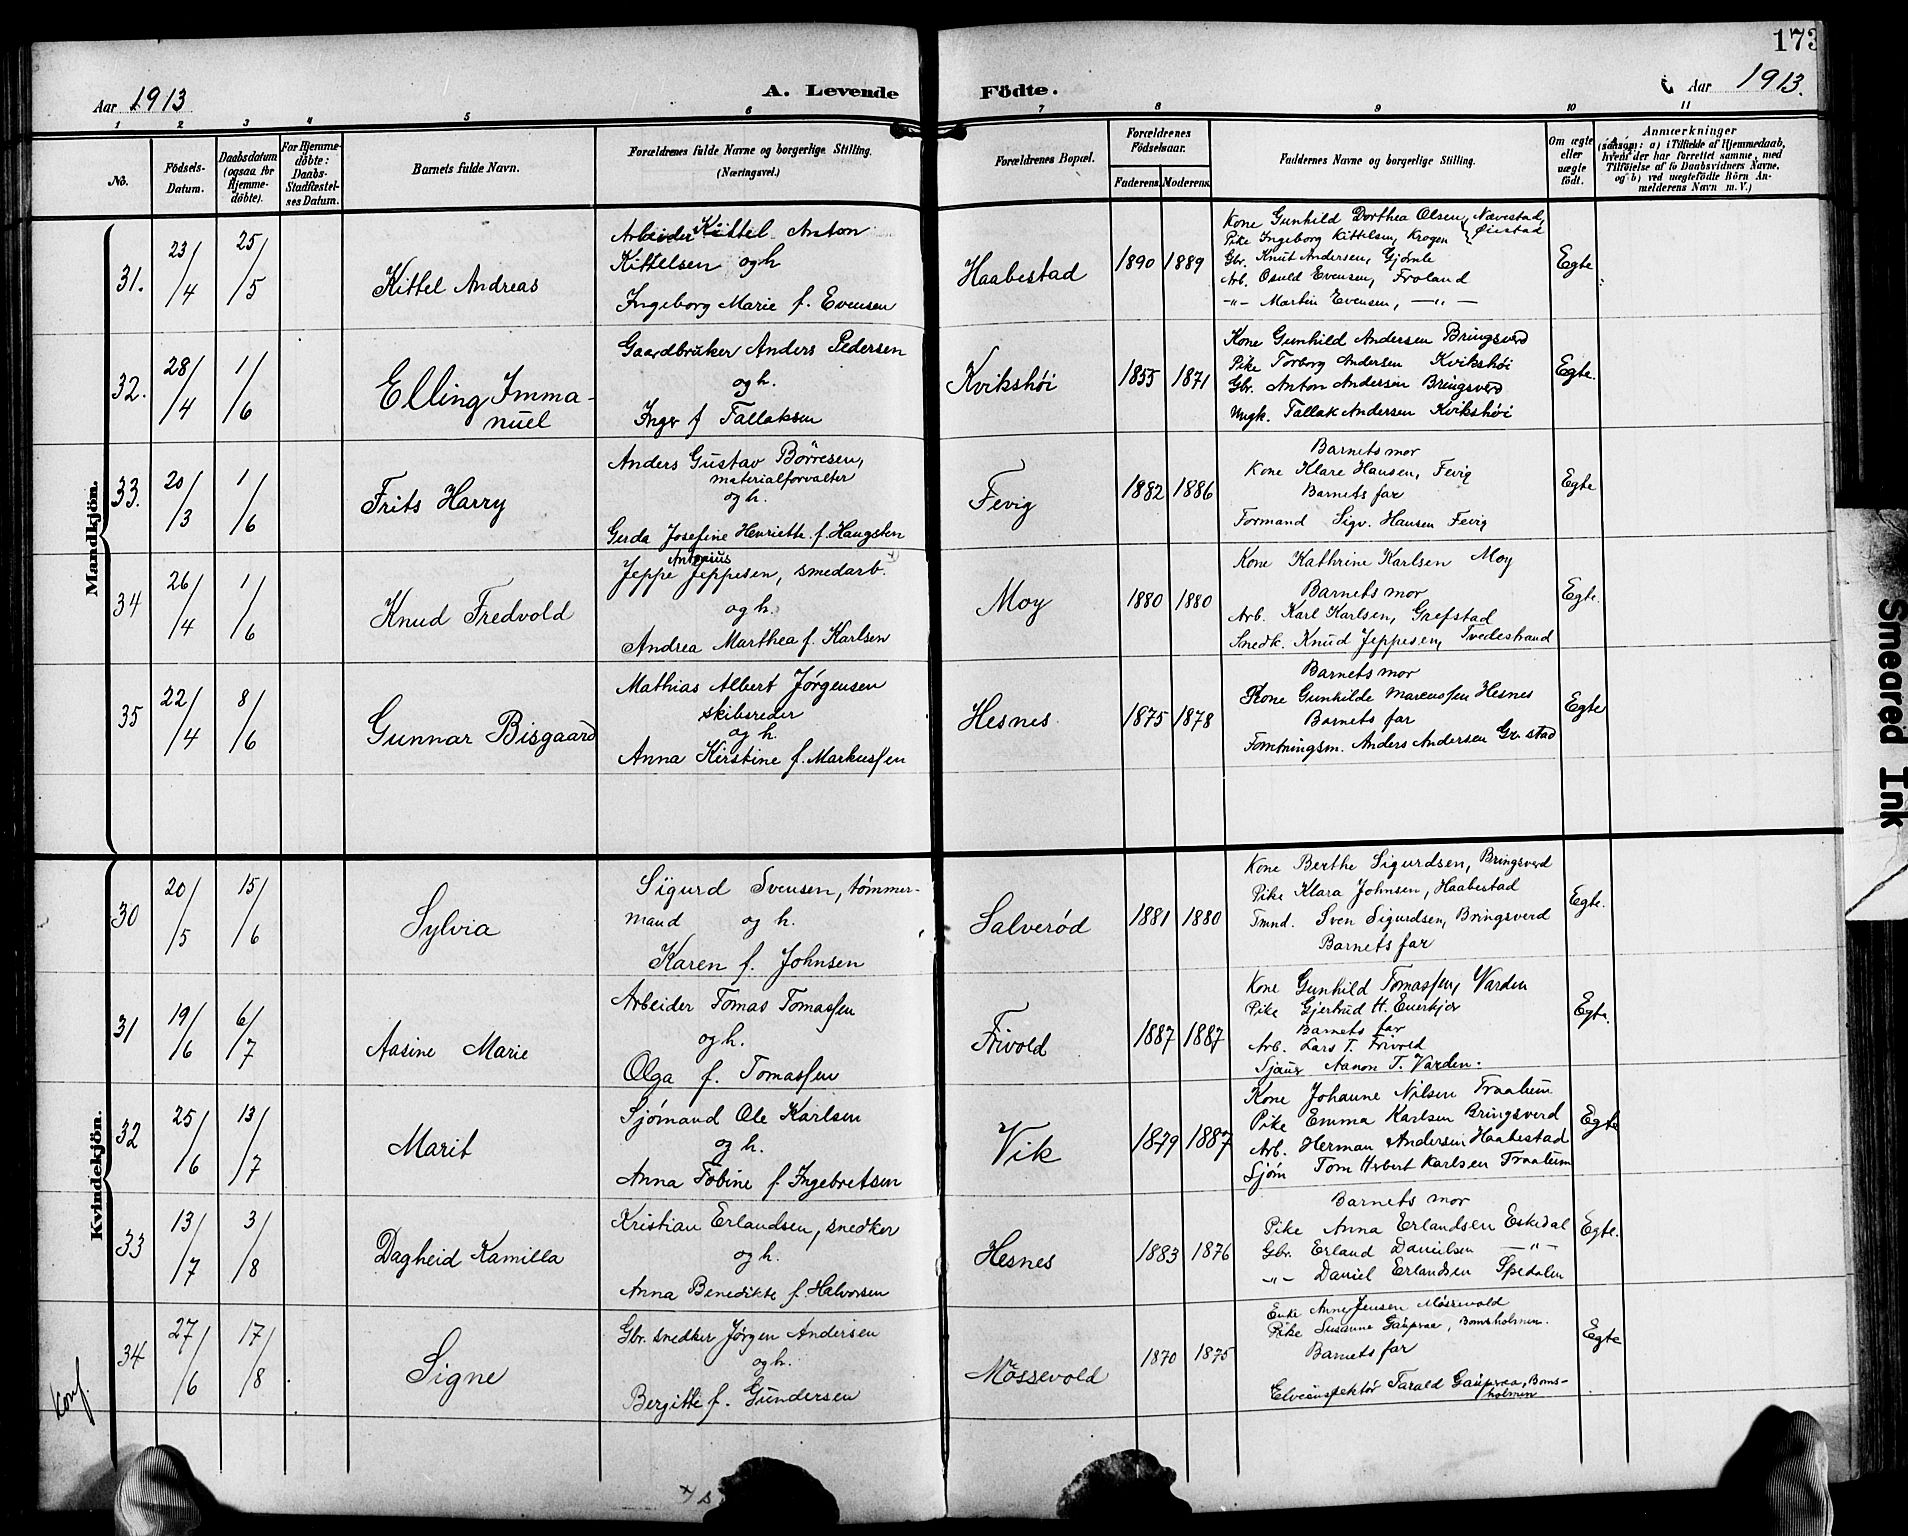 173
Aar 1913
A. Levende Födte.
Aar 1913.
1 2 3 4 5 6 7 8 9 10 11
No.
Födsels-
Datum.
Daabsdatum
(ogsaa for
Hjemme-
döbte).
For Hjemme-
döbte:
Daabs-
Stadfæstel-
ses Datum.
Barnets fulde Navn.
Forældrenes fulde Navne og borgerlige Stilling.
(Næringsvei.)
Forældrenes Bopæl.
Forældrenes
Födselsaar.
Faderens. Moderens.
Faddernes Navne og borgerlige Stilling.
Om ægte
eller
uægte
født.
Anmærkninger
(saasom: a) i Tilfælde af Hjemmedaab,
hvem der har forrettet samme, med
Tilföielse af to Daabsvidners Navne,
og b) ved uægtefödte Börn An-
melderens Navn m. V.)
Mandkjön.
31. 23/4 25/5 Kittel Andreas
Arbeider Kittel Anton
Kittelsen og h
Ingeborg Marie f. Evensen
Haabestad 1890 1889
Kone Gunhild Dorthea Olsen, Nævestad,
Pike Ingeborg Kittelsen, Krogen Øiestad
Gbr. Knut Andersen, Gjömle
Arb. Osuld Evensen, Froland
-"- Martin Evensen, -"-
Egte
32. 28/4 1/6 Elling Imma-
nuel
Gaardbruker Anders Pedersen
og h.
Inger f Tallaksen
Kvikshöi 1855 1871
Kone Gunhild Andersen Bringsverd
Pike Torborg Andersen Kvikshöi
Gbr. Anton Andersen Bringsverd
Ungk. Tallak Andersen Kvikshöi
Egte.
33. 20/3 1/6 Frits Harry
Anders Gustav Börresen,
materialforvalter
og h.
Gerda Josefine Henriette f. Haugsten
Fevig 1882 1886
Barnets mor
Kone Klare Hansen, Fevig
Barnets far
Formand Sigv. Hansen Fevig
Egte
34 26/4 1/6 Knud Fredvold
Antonius
Jeppe Jeppesen, smedarb.
og h.
Andrea Marthea f. Karlsen
Moy 1880 1880
Kone Kathrine Karlsen Moy
Barnets mor
Arb. Karl Karlsen, Grefstad
Snedk. Knud Jeppesen, Tvedestrand
Egte.
35 22/4 8/6 Gunnar Bisgaard
Mathias Albert Jørgensen
skibsreder
og h.
Anna Kirstine f. Markussen
Hesnes 1875 1878
Barnets mor
Kone Gunhilde Marcussen Hesnes
Barnets far
Anders Andersen
Egte
Kvindekjön.
30 20/5 15/6 Sylvia
Sigurd Svensen, tømmer-
mand og h.
Karen f. Johnsen
Salverød 1881 1880
Kone Berthe Sigurdsen, Bringsverd
Pike Klara Johnsen, Haabestad
Tmnd. Sven Sigurdsen, Bringsverd
Barnets far
Egte.
31 19/6 6/7 Aasine Marie
Arbeider Tomas Tomassen
og h.
Olga f. Tomassen
Frivold 1887 1887
Kone Gunhild Tomassen, Varden
Pike Gjertrud H.
Barnets far
Arb. Lars T. Frivold
Aanon T. Varden.
Egte.
32 25/6 13/7 Marit
Sjømand Ole Karlsen
og h.
Anna Tobine f. Ingebretsen
Vik 1879 1887
Kone Johanne Nilsen Traatum
Pike Emma Karlsen Bringsverd
Arb. Herman Andersen Haabestad
Sjøm Tom Karlsen Traatum
Egte
33 13/7 3/8 Dagheid Kamilla
Kristian Erlandsen, snedker
og h.
Anna Benedikte f. Halvorsen
Hesnes 1883 1876
Barnets mor
Pike Anna Erlandsen Eskedal
Gbr. Erland Danielsen -"-
-"- Daniel Erlandsen Spedalen
Egte.
Konf.
34 27/6 17/8 Signe
Gbr. snedker Jørgen Andersen
og h.
Bergitte f. Gundersen
Mössevold 1870 1875
Enke Anne Jensen Møssevold
Pike Susanne Gaupraa, Bomsholmen.
Barnets far
Elveinspektör Tarald Gaupraa, Boms-
holmen
Egte
Smeared Ink